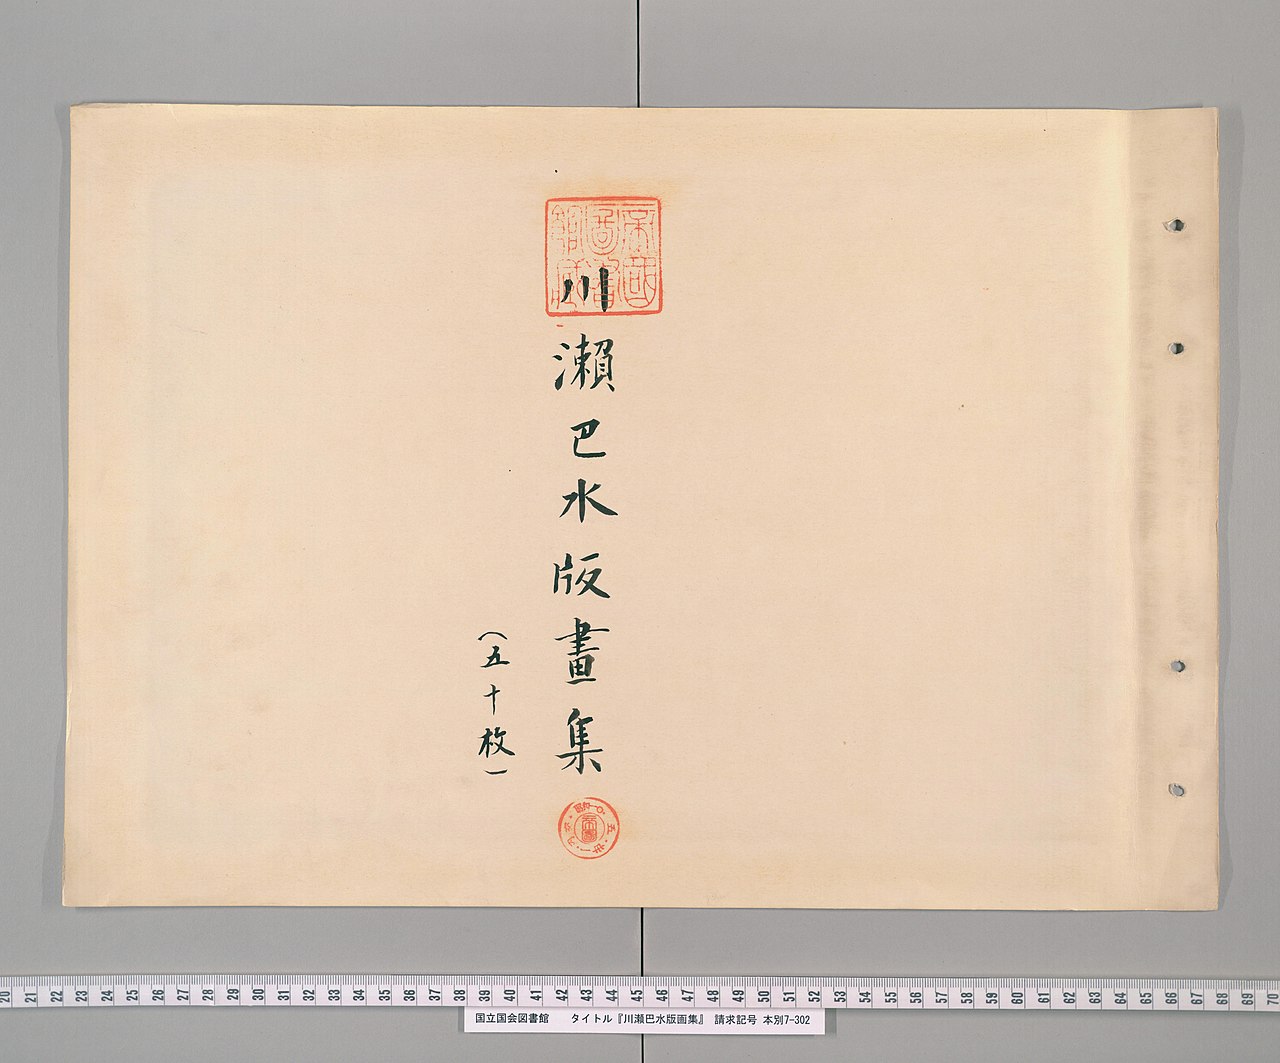 川瀨巴水版畫集
(五十枚)
帝國
圖書
館藏
20 21 22 23 24 25 26 27 28 29 30 31 32 33 34 35 36 37 38 39 40 41 42 43 44 45 46 47 48 49 50 51 52 53 54 55 56 57 58 59 60 61 62 63 64 65 66 67 68 69 70
国立国会図書館 タイトル『川瀬巴水版画集』 請求記号 本別7-302